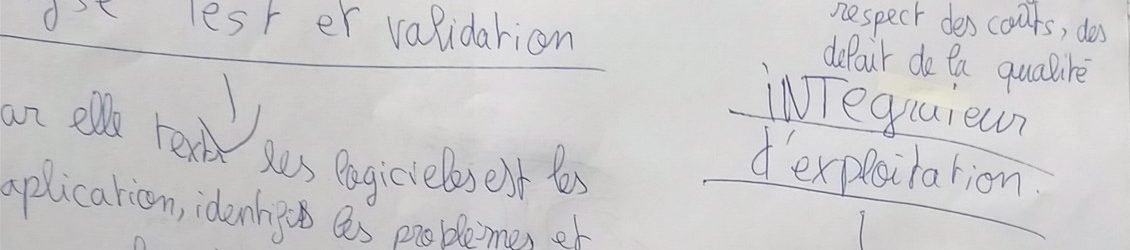 Test et validation
ar elle
les logicieles est les
aplication, identifies les problemes et
respect des coûts, des
defait de la qualité
iNTegraieur
d'exploitation.